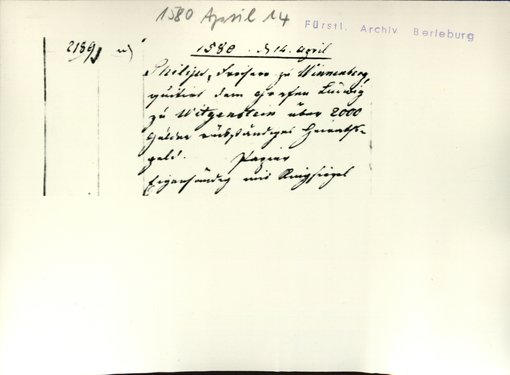 1580 April 14
Fürstl. Archiv Berleburg
2189 1580. d. 14. April
Philipp, Freiherr zu Winnenberg,
quitirt dem Grafen Ludwig
zu Witgenstein über 2000
Gulden rückständiges Heiraths-
geld. Papier
Eigenhändig mit Ringsiegel